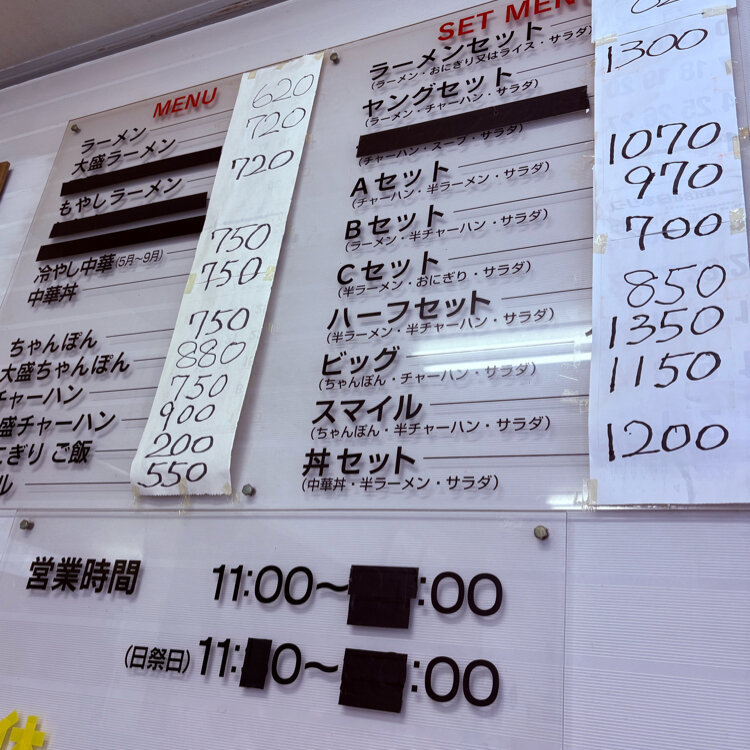 MENU
ラーメン 620
大盛ラーメン 720
もやしラーメン 720
冷やし中華(5月~9月) 750
中華丼 750
ちゃんぽん 750
大盛ちゃんぽん 880
チャーハン 750
盛チャーハン 900
ぎり ご飯 200
ル 550
SET MENU
ラーメンセット
(ラーメン・おにぎり又はライス・サラダ)
ヤングセット 1300
(ラーメン・チャーハン・サラダ)
(チャーハン・スープ・サラダ)
Aセット 1070
(チャーハン・半ラーメン・サラダ)
Bセット 970
(ラーメン・半チャーハン・サラダ)
Cセット 700
(半ラーメン・おにぎり・サラダ)
ハーフセット 850
(半ラーメン・半チャーハン・サラダ)
ビッグ 1350
(ちゃんぽん・チャーハン・サラダ)
スマイル 1150
(ちゃんぽん・半チャーハン・サラダ)
丼セット 1200
(中華丼・半ラーメン・サラダ)
営業時間 11:00~ :00
(日祭日) 11: 0~ :00